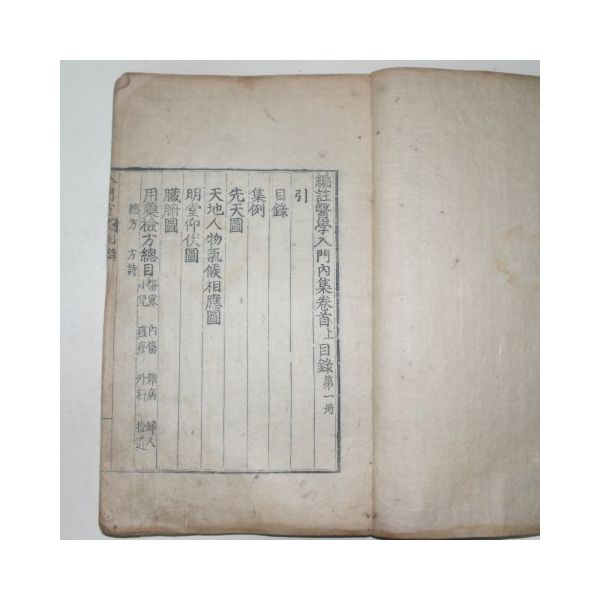 編註醫學入門內集卷首上 目錄 第一冊
引
目錄
集例
先天圖
天地人物氣候相應圖
明堂仰伏圖
臟腑圖
用藥檢方總目 傷寒 內傷 雜病 婦人
小兒 痘疹 外科 拾遺
總方 方詩